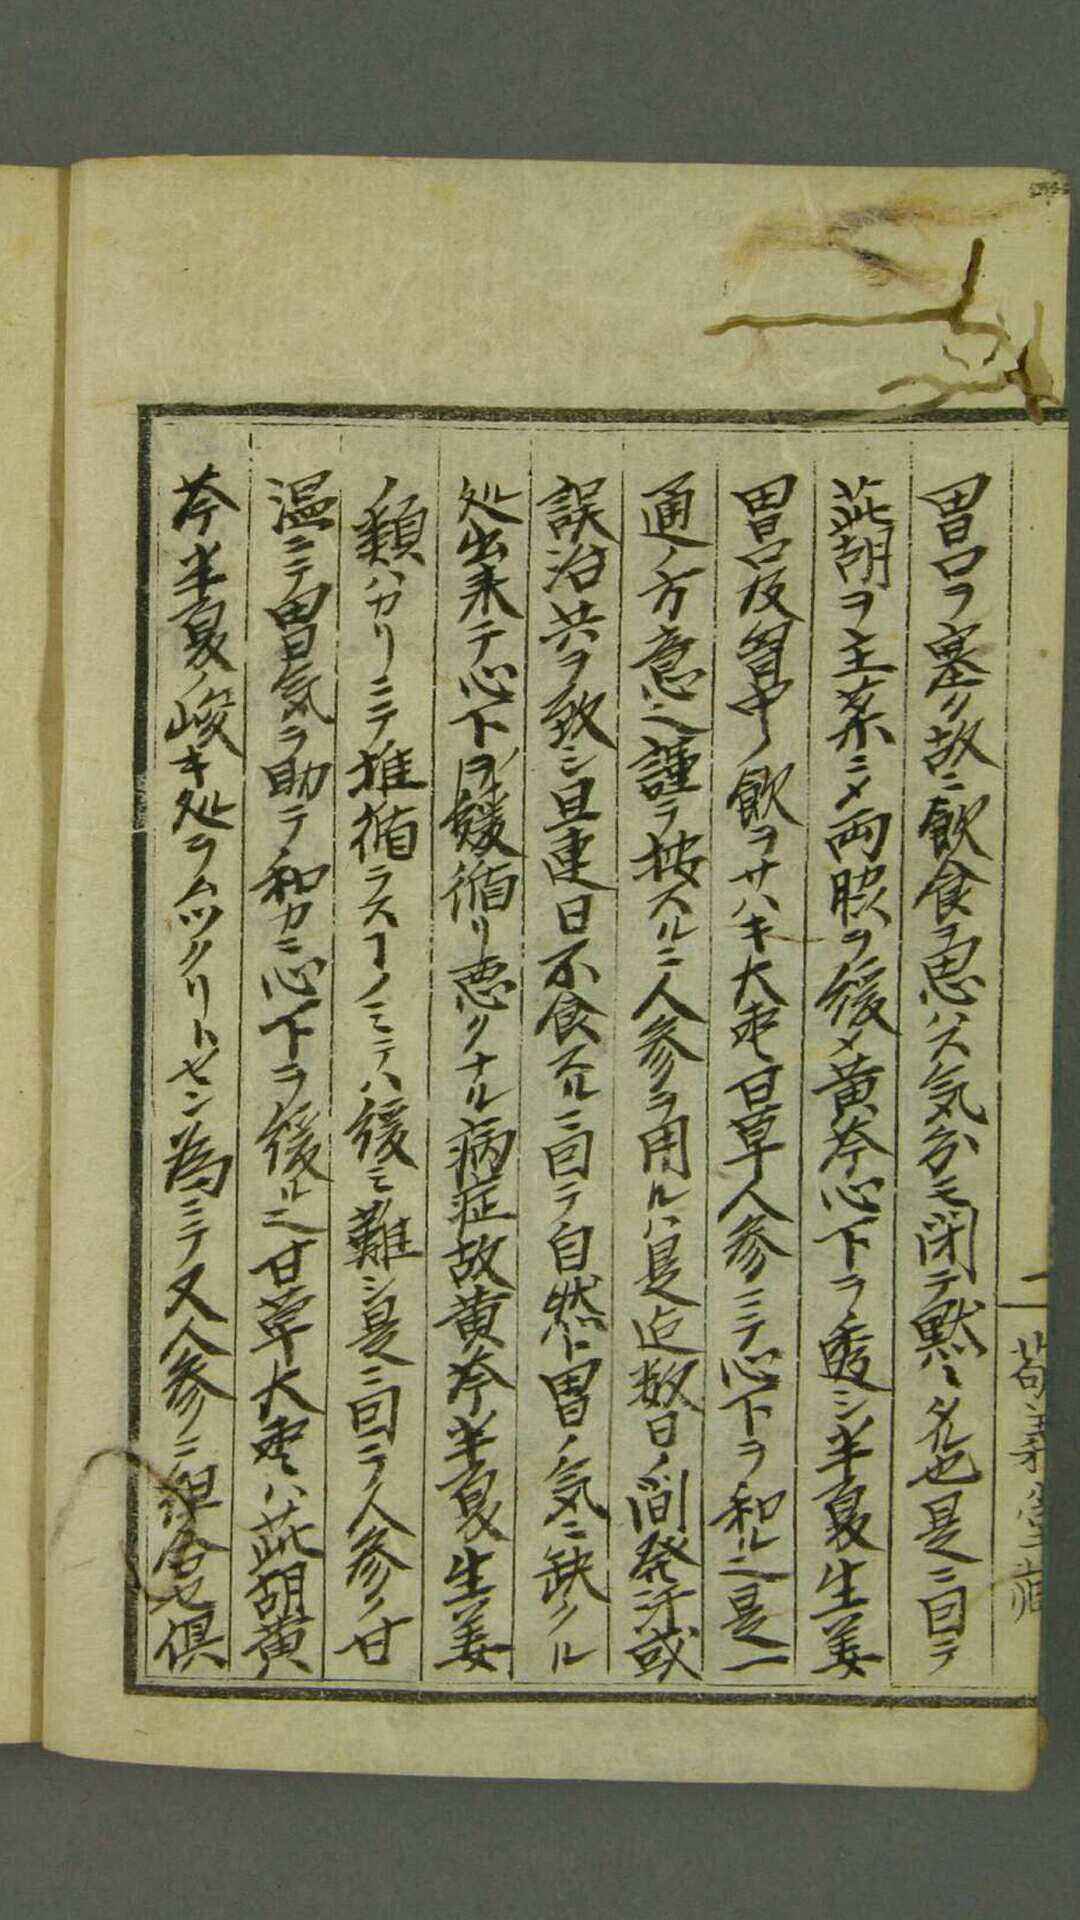 胃口ヲ塞ク故ニ飲食ヲ思ハス気分モ閉テ黙々タル也是ニ曰テ
茈胡ヲ主薬ニメ両脇ヲ緩メ黄芩心下ヲ透シ半夏生姜
胃口及胷中ノ飲ヲサハキ大枣甘草人参ニテ心下ヲ和ル也是一
通ノ方意也謹テ按スルニ人参ヲ用ルハ是迄数日ノ間発汗或
誤治共ヲ致シ且連日不食スルニ曰テ自然ト胃ノ気ニ缺クル
処出来テ心下ヲ緩循リ悪クナル病症故黄芩半夏生姜
ノ類ハカリニテ推循ラスヿノミテハ緩ミ難シ是ニ曰テ人参ノ甘
温ニテ胃気ヲ助テ和カニ心下ヲ緩ル也甘草大枣ハ茈胡黄
芩半夏ノ峻キ処ヲムツクリトセン為ニテ又人参ノニ組合セ倶